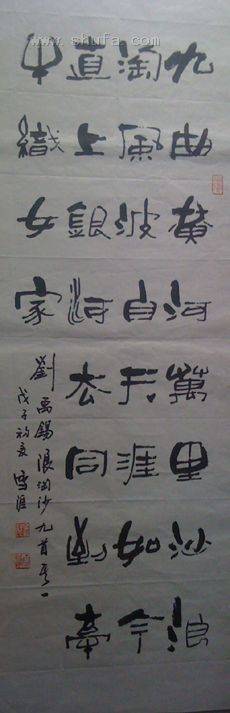 www.shufa.com
九曲黄河萬里沙浪
淘風波自天涯如今
直上銀河去同到牽
牛織女家
劉禹錫浪淘沙九首其一
戊子初夏